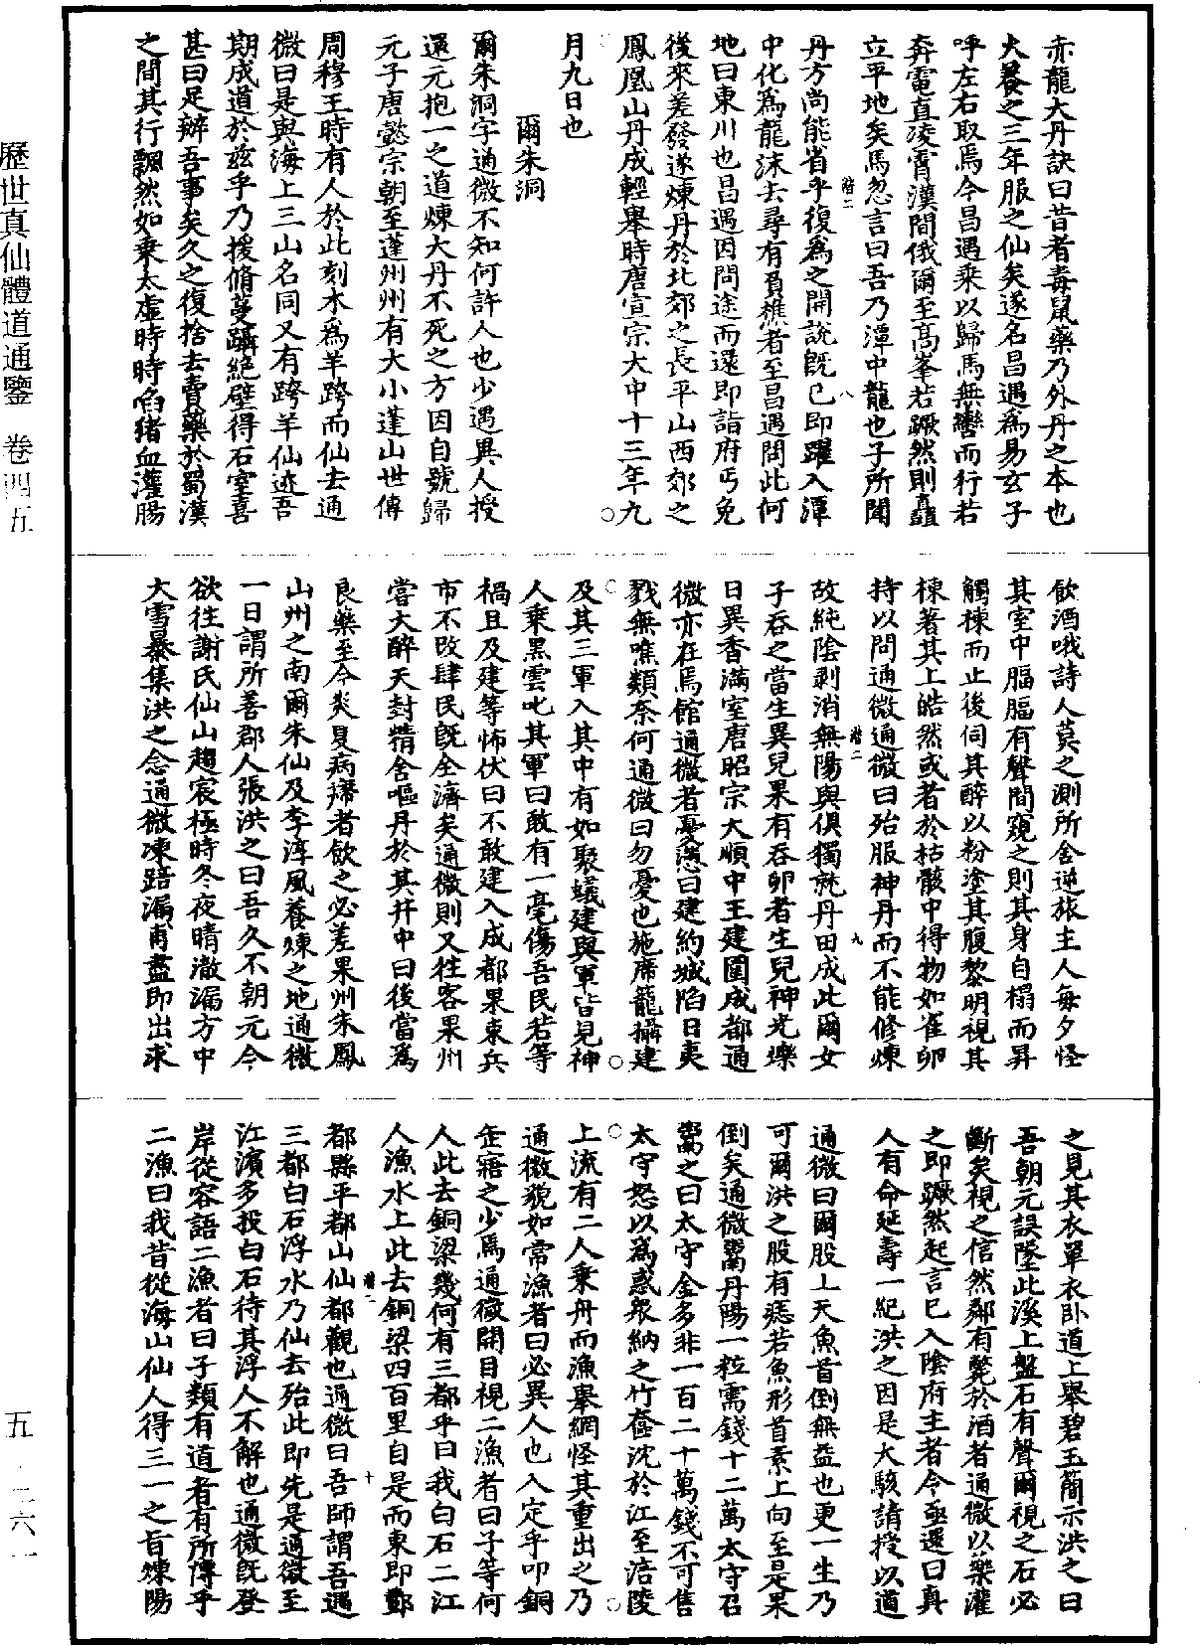 赤龍大丹訣曰昔者毒鼠藥乃外丹之本也
犬養之三年服之仙矣遂名昌遇為易玄子
呼左右取焉今昌遇乘以歸馬無轡而行若
奔電直凌霄漢間俄爾至高峯若蹶然則矗
立平地矣馬忽言曰吾乃潭中龍也子所聞
丹方尚能省乎復為之開說既已即躍入潭
中化為龍沫去尋有負樵者至昌遇問此何
地曰東川也昌遇因問途而還即詣府丐免
後來差發遂煉丹於北郊之長平山西郊之
鳳凰山丹成輕舉時唐宣宗大中十三年九
月九日也
爾朱洞
爾朱洞字通微不知何許人也少遇異人授
還元抱一之道煉大丹不死之方因自號歸
元子唐懿宗朝至蓬州州有大小蓬山世傳
周穆王時有人於此刻木為羊跨而仙去通
微曰是與海上三山名同又有跨羊仙迹吾
期成道於茲乎乃援脩蔓躡絕壁得石室喜
甚曰足辦吾事矣久之復捨去賣藥於蜀漢
之間其行飄然如乘太虛時時啗猪血灌腸
飲酒哦詩人莫之測所舍逆旅主人每夕怪
其室中腷腷有聲間窺之則其身自榻而昇
觸棟而止後伺其醉以粉塗其腹黎明視其
棟著其上皓然或者於枯骸中得物如雀卵
持以問通微通微曰殆服神丹而不能修煉
故純陰剥消無陽與俱獨就丹田成此爾女
子吞之當生異兒果有吞卵者生兒神光爍
日異香滿室唐昭宗大順中王建圍成都通
微亦在焉館通微者憂懣曰建約城陷日夷
戮無噍類奈何通微曰勿憂也施席籠攝建
及其三軍入其中有如聚蟻建與軍皆見神
人乘黑雲叱其軍曰敢有一毫傷吾民若等
禍且及建等怖伏曰不敢建入成都果束兵
市不改肆民既全濟矣通微則又往客果州
嘗大醉天封精舍嘔丹於其井中曰後當為
良藥至今炎夏病𤺊者飲之必差果州朱鳳
山州之南爾朱仙及李淳風養煉之地通微
一日謂所善郡人張洪之曰吾久不朝元今
欲往謝氏仙山趨宸極時冬夜晴澈漏方中
大雪暴集洪之念通微凍踣漏甫盡即出求
之見其衣單衣卧道上舉碧玉簡示洪之曰
吾朝元誤墜此溪上盤石有聲爾視之石必
斷矣視之信然鄰有斃於酒者通微以藥灌
之即蹶然起言已入陰府主者令亟還曰真
人有命延壽一紀洪之因是大駭請授以道
通微曰爾股上天魚首倒無益也更一生乃
可爾洪之股有痣若魚形首素上向至是果
倒矣通微鬻丹陽一粒需錢十二萬太守召
鬻之曰太守金多非一百二十萬錢不可售
太守怒以為惑衆納之竹奩沈於江至涪陵
上流有二人乘舟而漁舉網怪其重出之乃
通微貌如常漁者曰必異人也入定乎叩銅
缶寤之少焉通微開目視二漁者曰子等何
人此去銅梁幾何有三都乎曰我白石二江
人漁水上此去銅梁四百里自是而東即酆
都縣平都山仙都觀也通微曰吾師謂吾遇
三都白石浮水乃仙去殆此即先是通微至
江濱多投白石待其浮人不解也通微既登
岸從容語二漁者曰子類有道者有所傳乎
二漁曰我昔從海山仙人得三一之旨煉陽
歷世真仙體道通鑒 卷四五